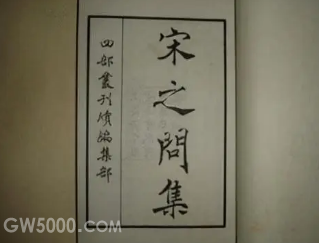 宋之問集
四部叢刊續編集部
GW5000.com